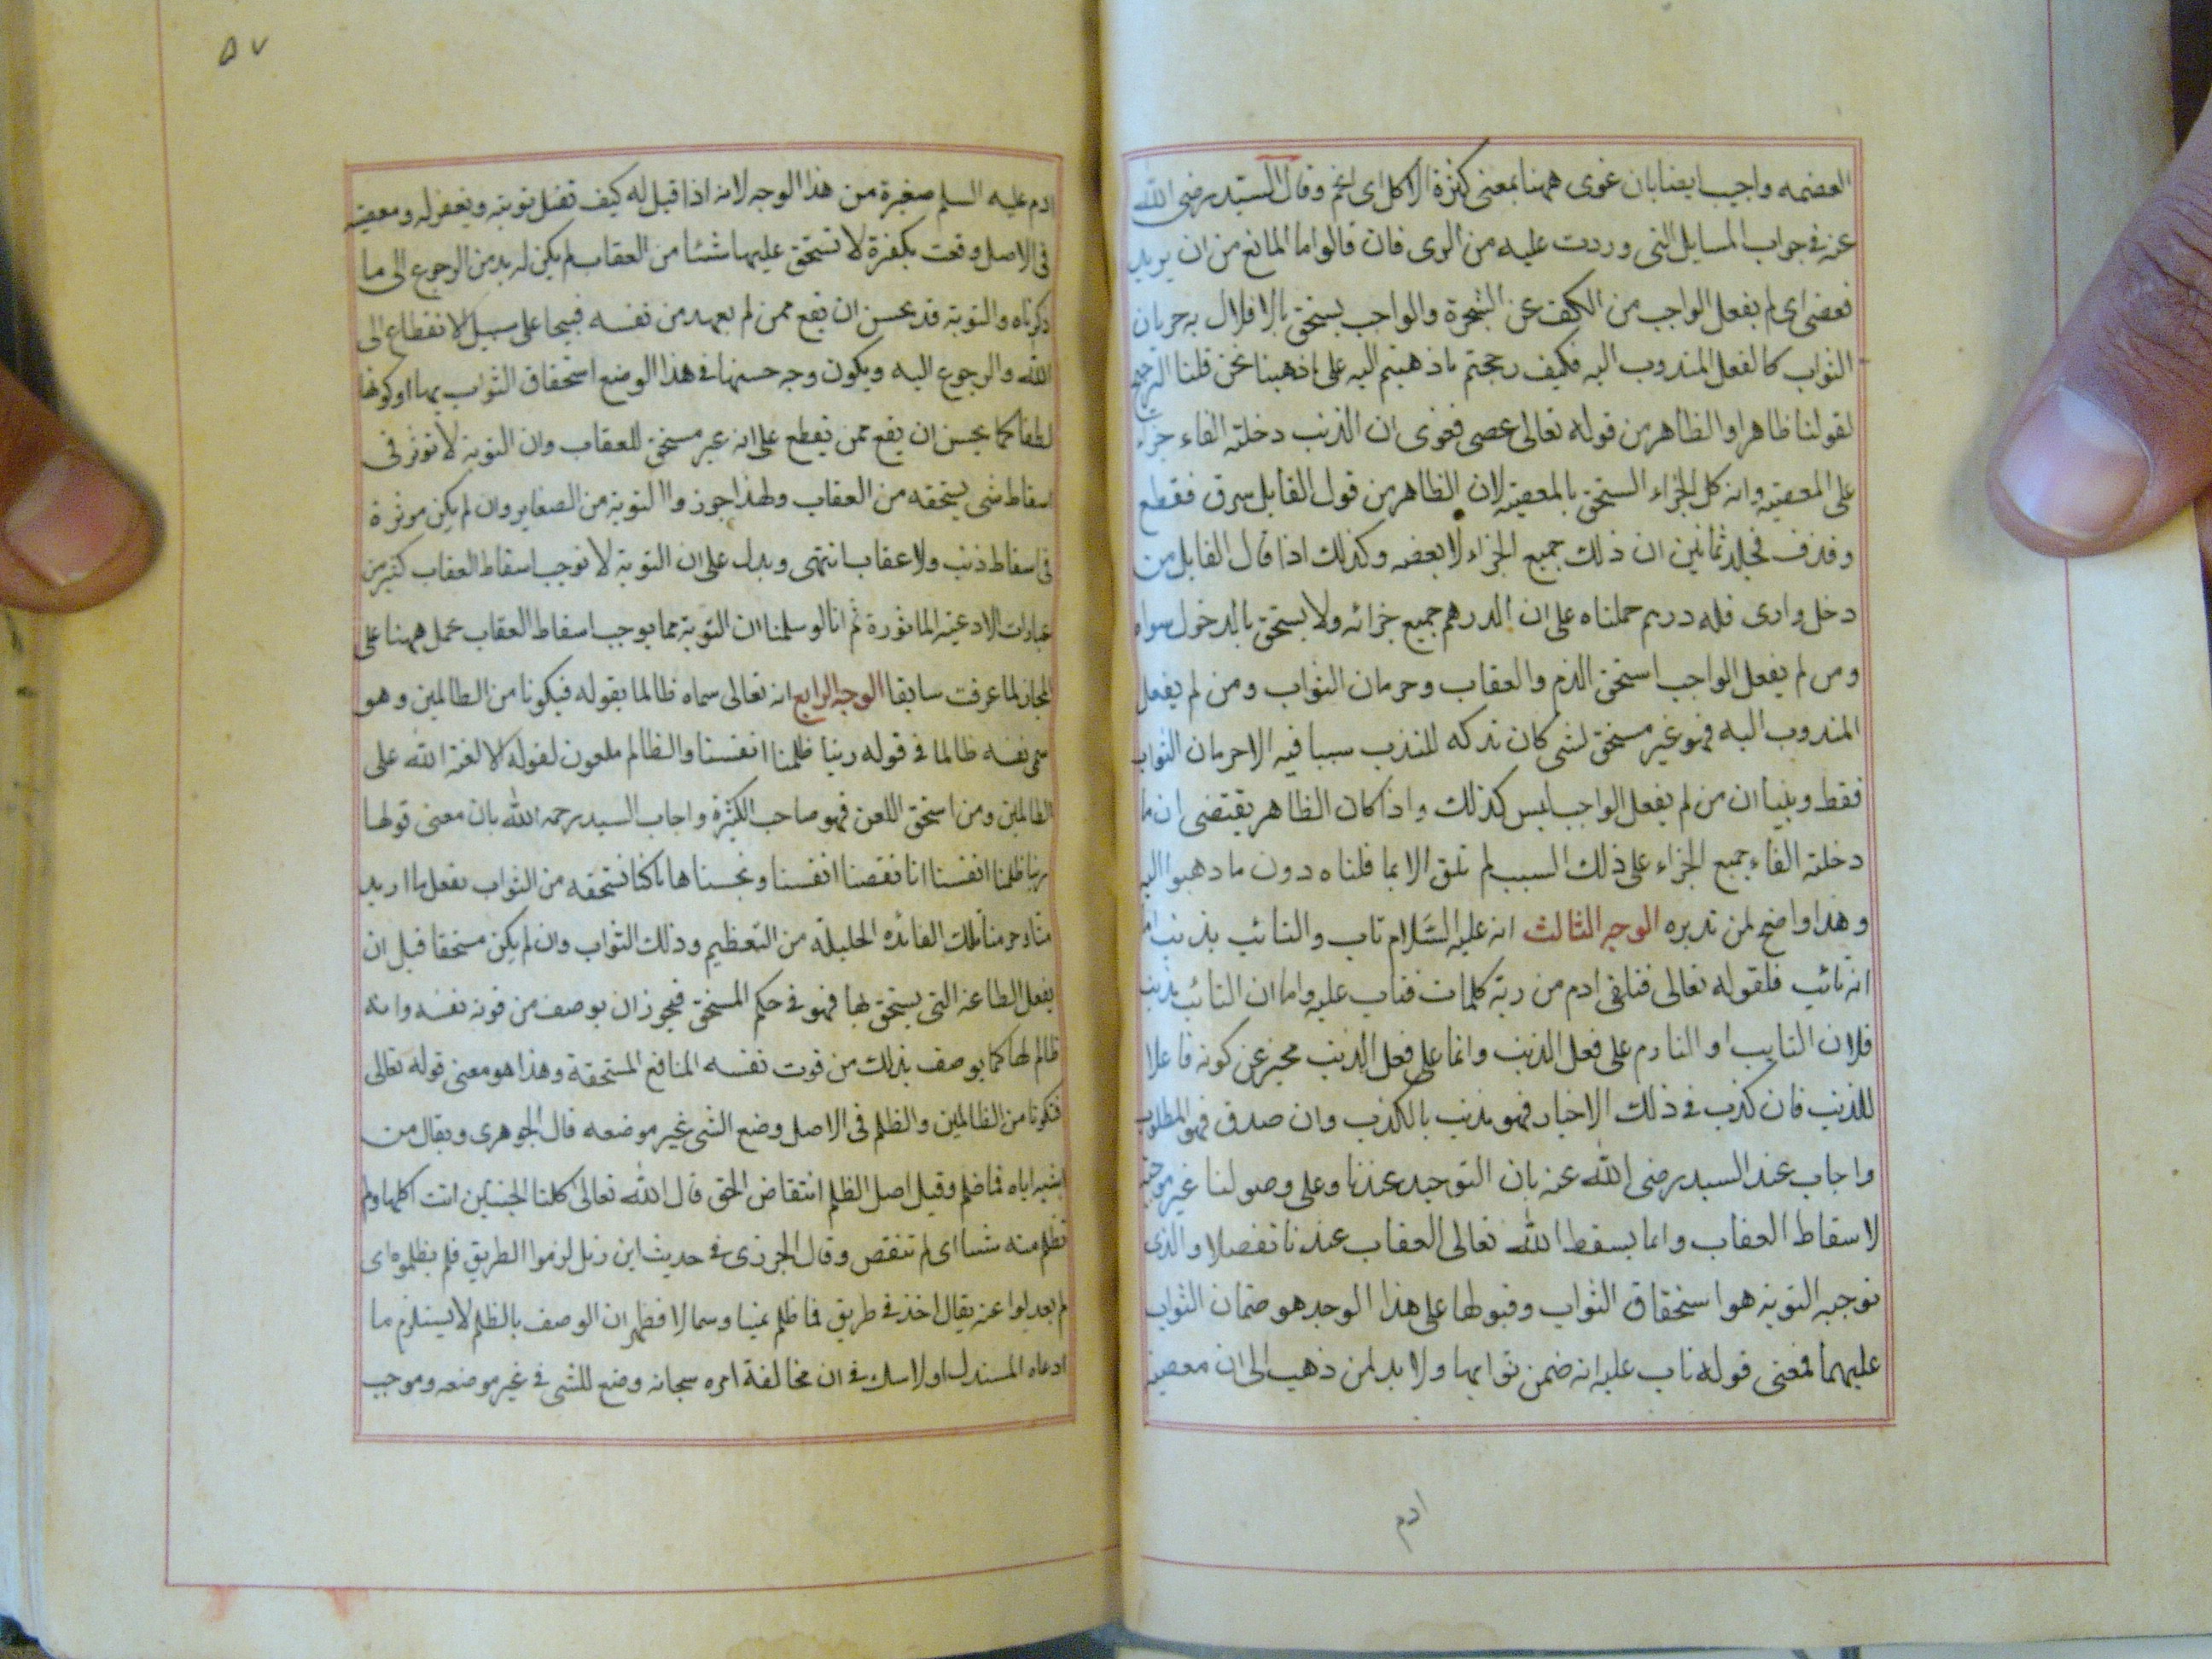 العصمه واجيب ايضا بان غوى ههنا بمعنى كثرة الاكل اى اتخم وقال السيد رضى الله
عنه فى جواب المسايل التى وردت عليه من الرى فان قالوا ما المانع من ان يريد
فعصى اى لم يفعل الواجب من الكف عن الشجرة والواجب يستحق بالاخلال به حرمان
الثواب كالفعل المندوب اليه فكيف رجحتم ما ذهبتم اليه على ما ذهبنا نحن قلنا الترجيح
لقولنا ظاهر اوالظاهر من قوله تعالى عصى فغوى ان الذنب دخلته الفاء جزاء
على المعصية وانه كل الجزاء المستحق بالمعصية لان الظاهر من قول القايل سرق فقطع
وقذف فجلد ثمانين ان ذلك جميع الجزاء لا بعضه وكذلك اذا قال القايل من
دخل دارى فله درهم حملناه على ان الدرهم جميع جزائه ولا يستحق بالدخول سواه
ومن لم يفعل الواجب استحق الذم والعقاب وحرمان الثواب ومن لم يفعل
المندوب اليه فهو غير مستحق لشى كان تركه للندب سببا فيه الا حرمان الثواب
فقط وبينا ان من لم يفعل الواجب ليس كذلك واذا كان الظاهر يقتضى ان ما
دخلته الفاء جميع الجزاء على ذلك السبب لم تلق الا بما قلناه دون ما ذهبوا اليه
وهذا واضح لمن تدبره الوجه الثالث انه عليه السلام تاب والتائب بذنب اما
انه تائب فلقوله تعالى فتلقى ادم من ربه كلمات فتاب عليه واما ان التائب مذنب
فلان التايب او النادم على فعل الذنب وانما على فعل الذنب مخبر عن كونه فاعلا
للذنب فان كذب فى ذلك الاخبار فهو مذنب بالكذب وان صدق فهو المطلوب
واجاب عند السيد رضى الله عنه بان التوحيد عندنا وعلى وصولنا غير موجبة
لاسقاط العقاب وانما يسقط الله تعالى العقاب عندنا تفضلا والذى
توجبه التوبة هو استحقاق الثواب وقبولها على هذا الوجه هو ضمان الثواب
عليهما فمعنى قوله تاب عليه انه ضمن ثوابها ولا بد لمن ذهب الى ان معصية
ادم
۵۷
ادم عليه السلم صغيرة من هذا الوجه لانه اذا قيل له كيف تقبل توبته ويغفر له ومعصيته
فى الاصل وقعت مكفرة لا تستحق عليها شئا من العقاب لم يكن له بد من الرجوع الى ما
ذكرناه والتوبة قد يحسن ان تقع ممن لم يعهد من نفسه قبيحا على سبيل الانقطاع الى
الله والرجوع اليه ويكون وجه حسنها فى هذا الموضع استحقاق الثواب بها او كونها
لطفا كما يحسن ان يقع ممن يقطع على انه غير مستحق للعقاب وان التوبة لا تؤثر فى
اسقاط شى يستحقه من العقاب ولهذا جوزوا التوبة من الصغاير وان لم يكن موثرة
فى اسقاط ذنب ولا عقاب انتهى ويدل على ان التوبة لا توجب اسقاط العقاب كثير من
عبارات الادعية الماثورة ثم انا لو سلمنا ان التوبة مما يوجب اسقاط العقاب نحمل ههنا على
المجاز لما عرفت سابقا الوجه الرابع انه تعالى سماه ظالما بقوله فتكونا من الظالمين وهو
سمى نفسه ظالما فى قوله ربنا ظلمنا انفسنا والظالم ملعون لقوله الا لعنة الله على
الظالمين ومن استحق اللعن فهو صاحب الكبيرة واجاب السيد رحمه الله بان معنى قولها
ربنا ظلمنا انفسنا انا نقصنا انفسنا وبخسناها ما كنا نستحقه من الثواب بفعل ما اريد
منا وحرمنا تلك الفائده الجليلة من التعظيم وذلك الثواب وان لم يكن مستحقا قبل ان
يفعل الطاعة التى يستحق لها فهو فى حكم المستحق فيجوز ان يوصف من فوته نفسه وانه
ظالم لها كما يوصف بذلك من فوت نفسه المنافع المستحقة وهذا هو معنى قوله تعالى
فتكونا من الظالمين والظلم فى الاصل وضع الشى غير موضعه قال الجوهرى ويقال من
اشبه اباه فما ظلم وقيل اصل الظلم انتقاص الحق قال الله تعالى كلتا الجنتين اتت اكلها ولم
تظلم منه شئا اى لم تنقص وقال الجزرى فى حديث ابن زمل لزموا الطريق فلم يظلموه اى
لم يعدلوا عنه يقال اخذ فى طريق فما ظلم يمينا وشمالا فظهر ان الوصف بالظلم لا يستلزم ما
ادعاه المستدل اولا شك فى ان مخالفة امره سبحانه وضع للشى فى غير موضعه وموجب